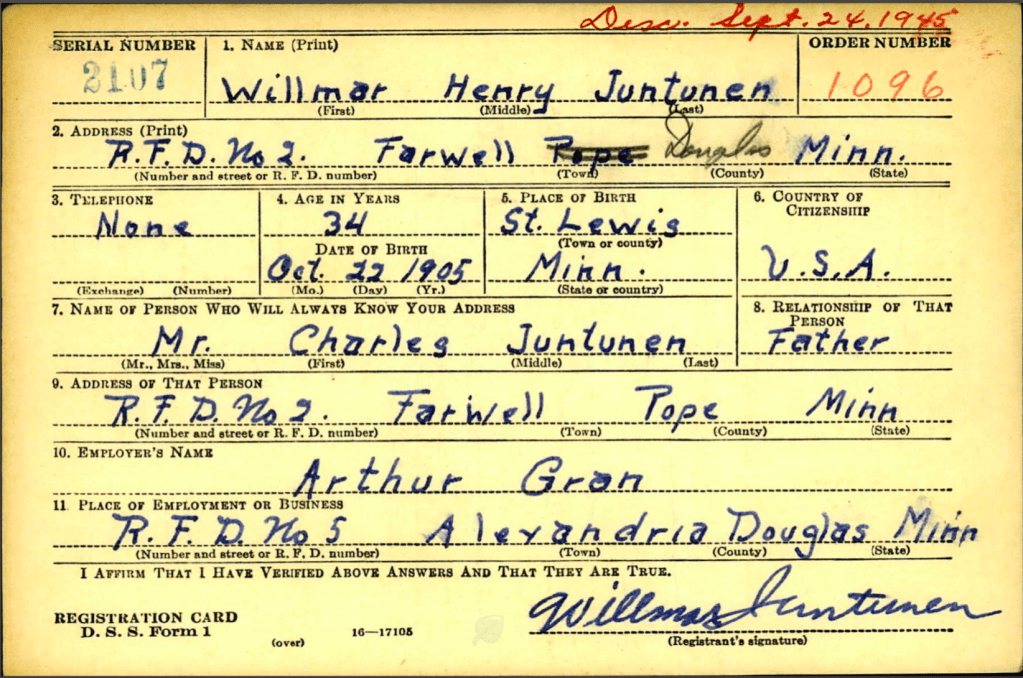 Desc. Sept. 24, 1945
SERIAL NUMBER 1. NAME (Print) ORDER NUMBER
2107 Willmar Henry Juntunen 1096
(First) (Middle) (Last)
2. ADDRESS (Print)
R.F.D. No 2. Farwell Pope Douglas Minn.
(Number and street or R. F. D. number) (Town) (County) (State)
3. TELEPHONE 4. AGE IN YEARS 5. PLACE OF BIRTH 6. COUNTRY OF CITIZENSHIP
None 34 St. Lewis
(Town or county)
DATE OF BIRTH
Oct. 22 1905 Minn. U.S.A.
(Exchange) (Number) (Mo.) (Day) (Yr.) (State or country)
7. NAME OF PERSON WHO WILL ALWAYS KNOW YOUR ADDRESS 8. RELATIONSHIP OF THAT PERSON
Mr. Charles Juntunen Father
(Mr., Mrs., Miss) (First) (Middle) (Last)
9. ADDRESS OF THAT PERSON
R.F.D. No 2. Farwell Pope Minn
(Number and street or R. F. D. number) (Town) (County) (State)
10. EMPLOYER'S NAME
Arthur Gran
11. PLACE OF EMPLOYMENT OR BUSINESS
R.F.D. No 5 Alexandria Douglas Minn
(Number and street or R. F. D. number) (Town) (County) (State)
I AFFIRM THAT I HAVE VERIFIED ABOVE ANSWERS AND THAT THEY ARE TRUE.
Willmar Juntunen
REGISTRATION CARD
D. S. S. Form 1 (over) 16—17105 (Registrant's signature)